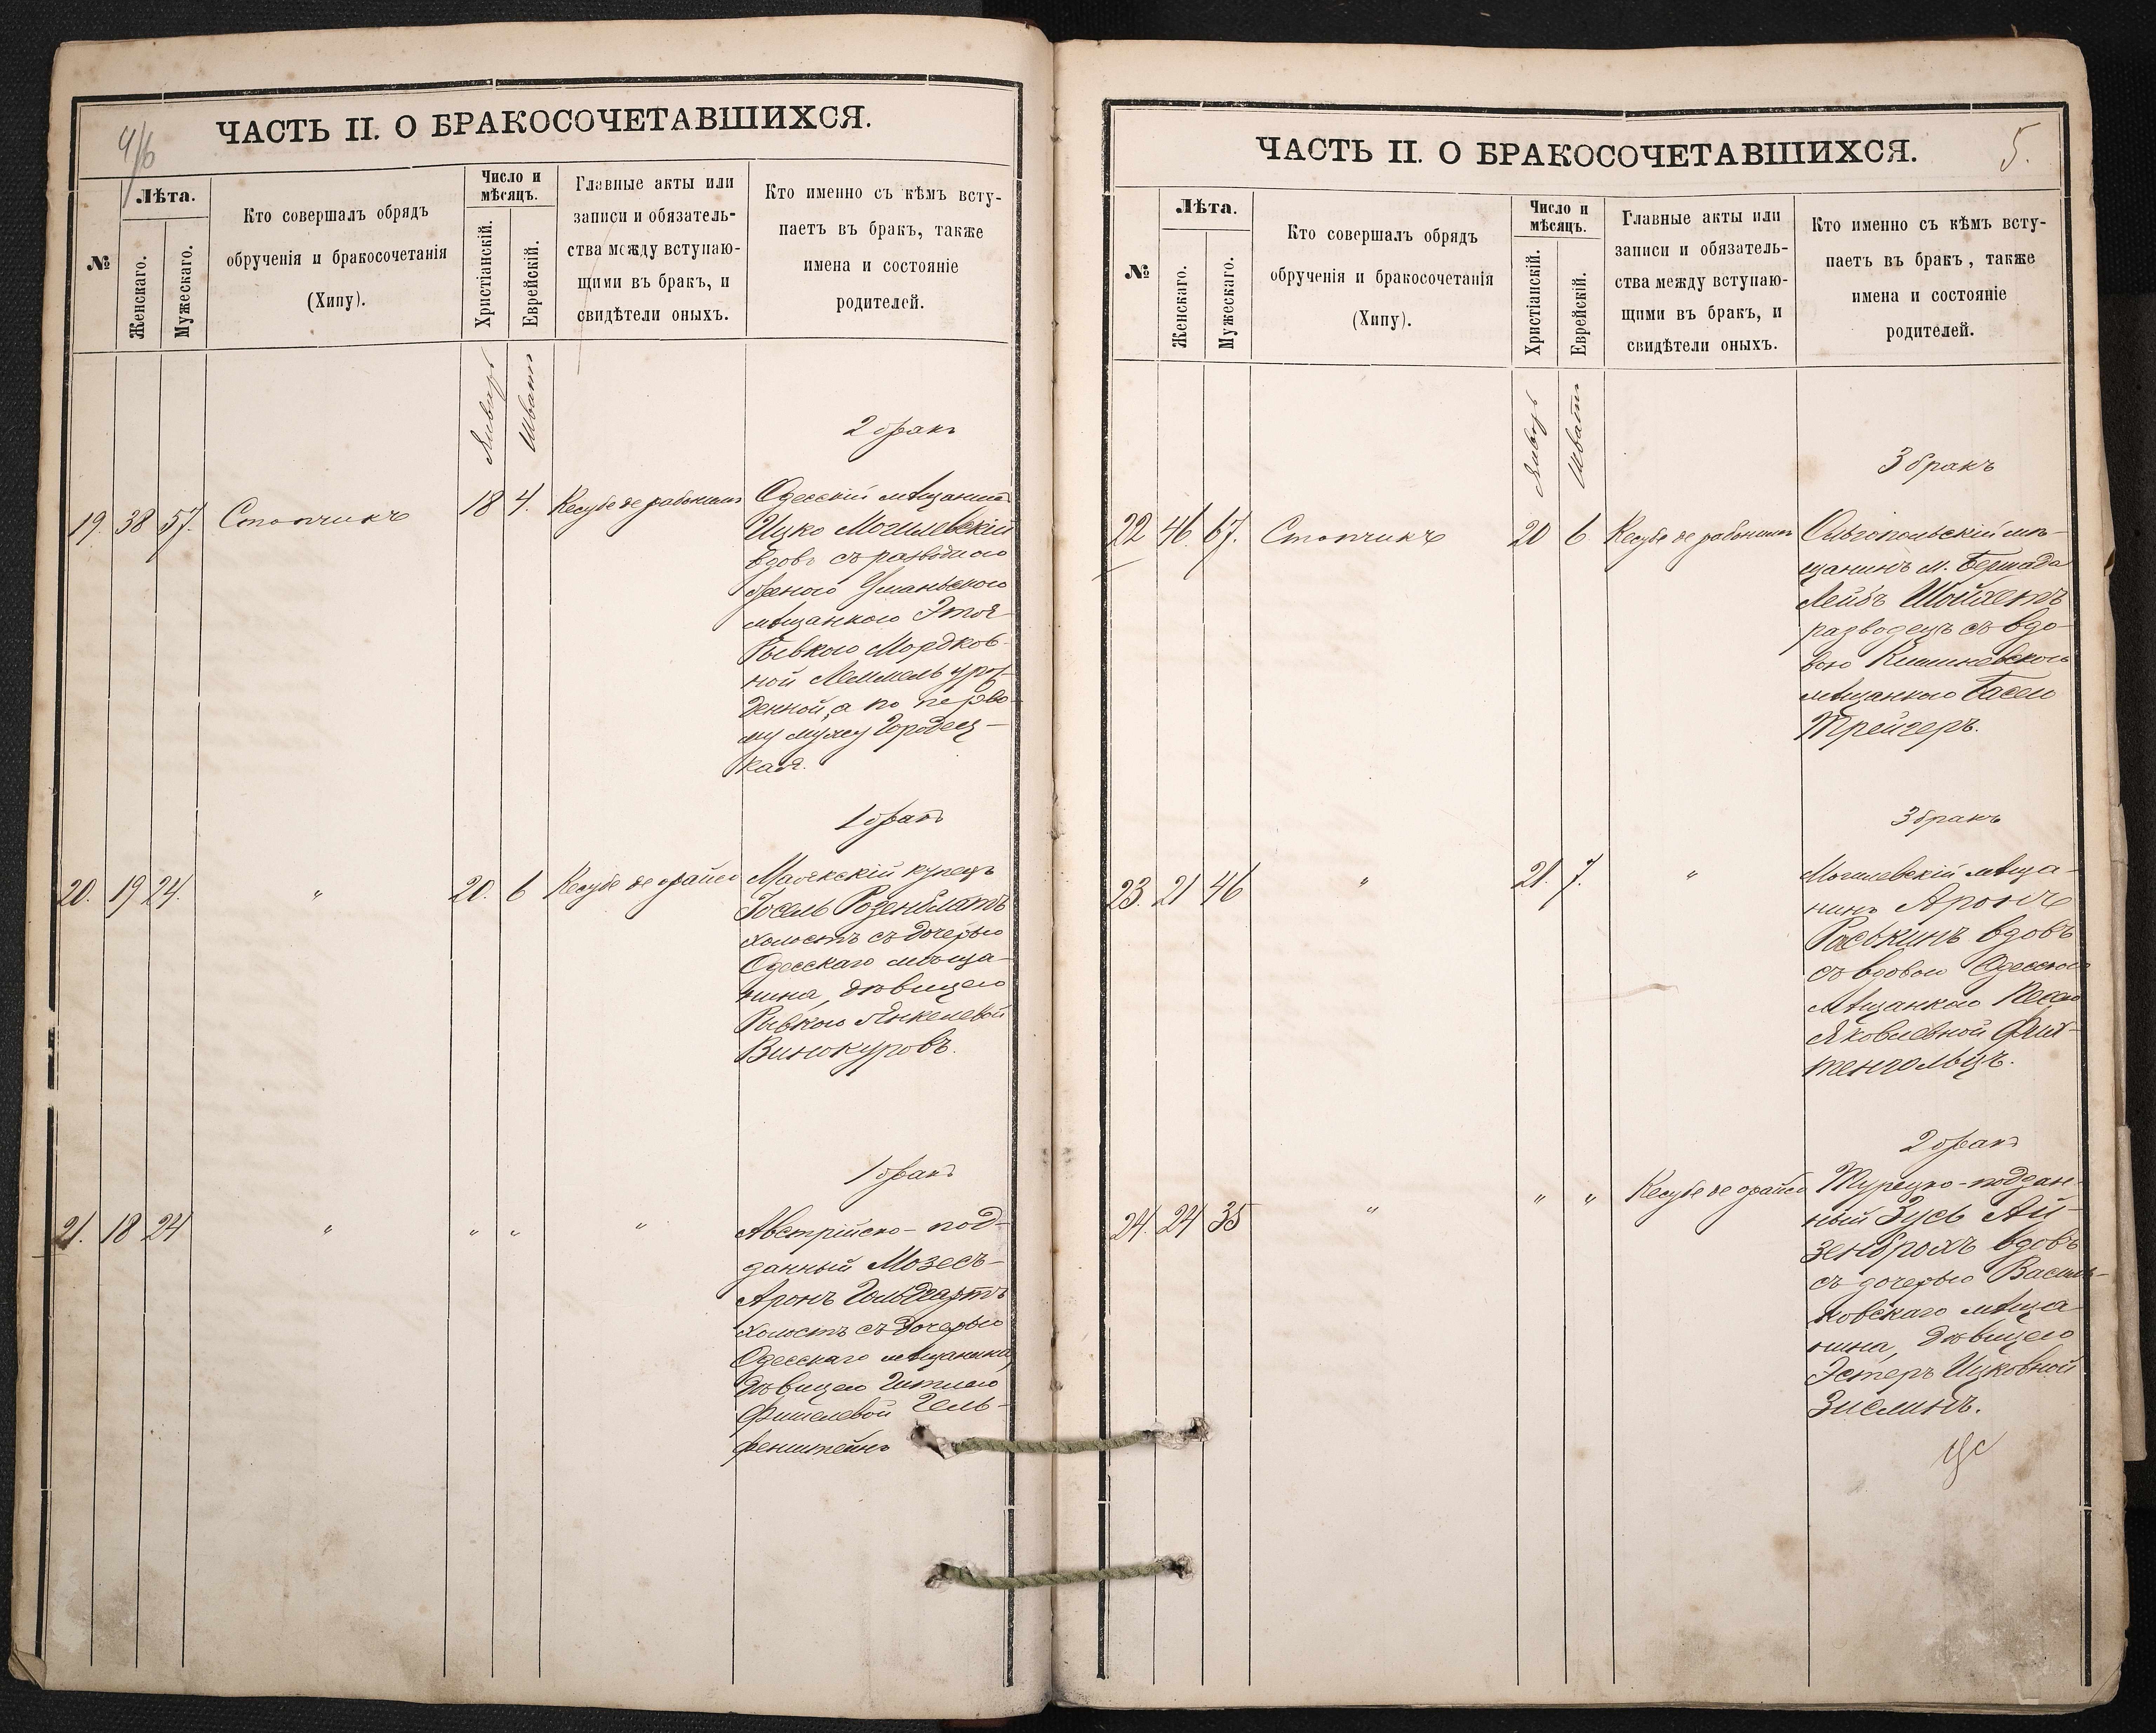 ЧАСТЬ II. О БРАКОСОЧЕТАВШИХСЯ.
№
Лѣта.
Женскаго.
Мужескаго.
Кто совершалъ обрядъ
обрученія и бракосочетанія
(Хипу).
Число и
мѣсяцъ.
Христіанскій.
Еврейскій.
Главные акты или
записи и обязатель-
ства между вступаю-
щими въ бракъ, и
свидѣтели оныхъ.
Кто именно съ кѣмъ всту-
паетъ въ бракъ, также
имена и состояніе
родителей.
Январь
Шватъ
2 бракъ
19. 38 57. Стопчикъ 18 4. Кесубе де рабонимъ
Одесскій мѣщанинъ
Ицко Могилевскій
вдовъ съ разводною
Уманьскою
мѣщанкою Этой
Рывкою Мордков-
ной Леммель урож
денной, а по перво-
му мужу Городец-
кая.
1 бракъ
20. 19 24. " 20. 6 Кесубе де орайсо
Маякскій купецъ
Іосель Розенблатъ
холостъ съ дочерью
Одесскаго мѣща-
нина, дѣвицею
Рывкою Янкелевой
Винокуровъ.
1 бракъ
21. 18 24 " " " "
Австрійско-под-
данный Мозесъ-
Аронъ Гольдгартъ
холостъ съ дочерью
Одесскаго мѣщанина,
дѣвицею Гитлею
Фишелевой Гель-
фенштейнъ
ЧАСТЬ II. О БРАКОСОЧЕТАВШИХСЯ.
5.
№
Лѣта.
Женскаго.
Мужескаго.
Кто совершалъ обрядъ
обрученія и бракосочетанія
(Хипу).
Число и
мѣсяцъ.
Христіанскій.
Еврейскій.
Главные акты или
записи и обязатель-
ства между вступаю-
щими въ бракъ, и
свидѣтели оныхъ.
Кто именно съ кѣмъ всту-
паетъ въ бракъ, также
имена и состояніе
родителей.
Январь
Шватъ
3 бракъ
22 46. 67. Стопчикъ 20 6 Кесубе де рабонимъ
Ольгопольскій мѣ-
щанинъ м. Бершада
Лейбъ Шойхетъ
разводецъ съ вдо-
вою Кишиневскою
мѣщанкою Басею
Трейгеръ.
3 бракъ
23. 21 46 " 21. 7. "
Могилевскій мѣща-
нинъ Аронъ
Раськинъ вдовъ
съ вдовою Одесскою
мѣщанкою Песею
Яковлевной Фих-
тенгольцъ.
2 бракъ
24. 24 35 " " " Кесубе де орайсо
Турецко-поддан-
ный Зусь Ай-
зенброхъ вдовъ
съ дочерью Василь-
ковскаго мѣща
нина, дѣвицею
Эстеръ Ицковной
Зислинъ.